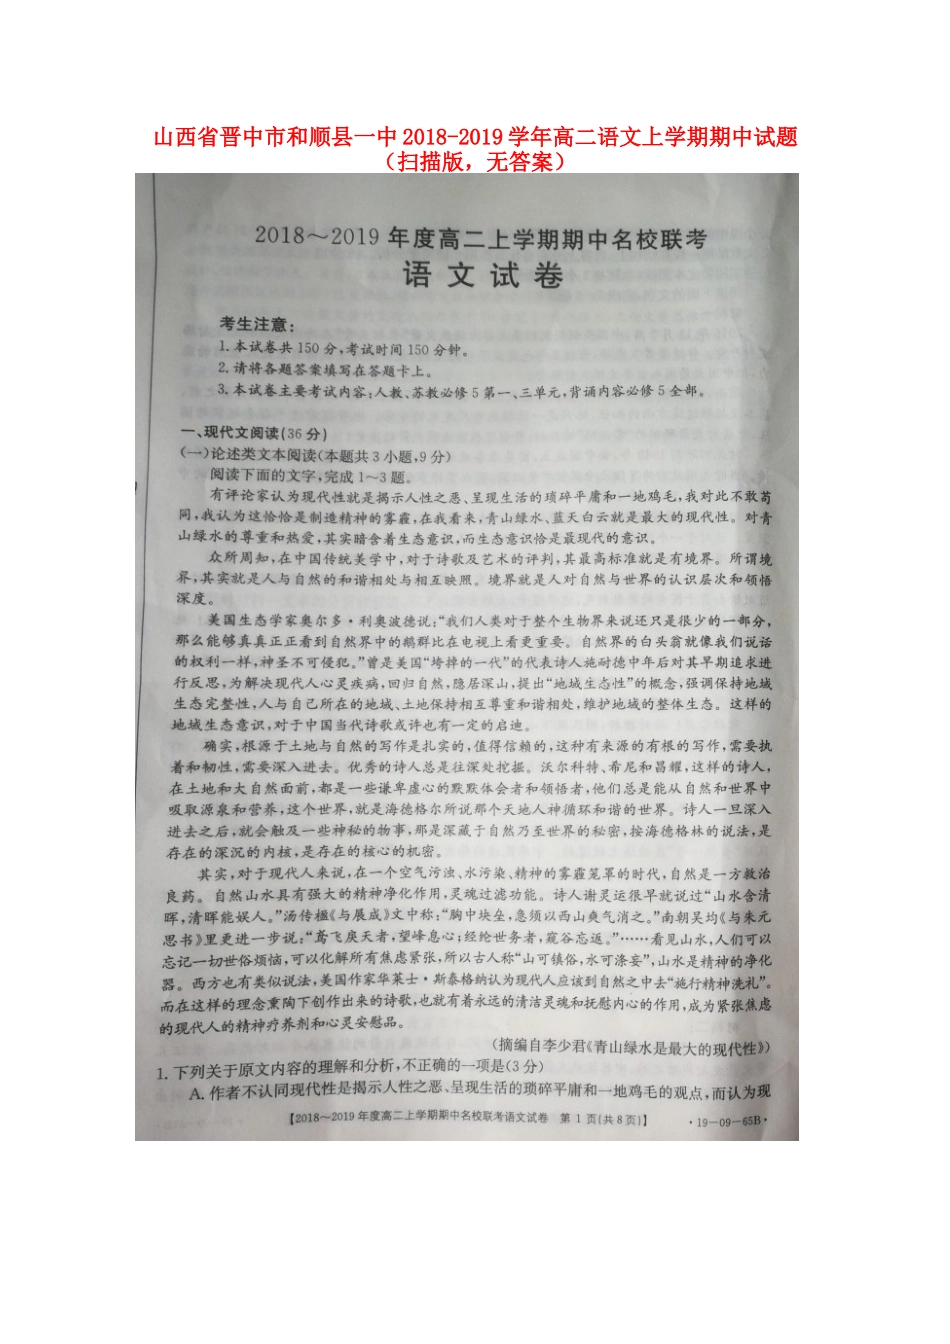 山西省晋中市和顺县一中2018-2019学年高二语文上学期期中试题
（扫描版，无答案）
2018～2019年度高二上学期期中名校联考
语文试卷
考生注意：
1.本试卷共150分,考试时间150分钟。
2.请将各题答案填写在答题卡上。
3.本试卷主要考试内容:人教、苏教必修5第一、三单元,背诵内容必修5全部。
一、现代文阅读(36分)
(一)论述类文本阅读(本题共3小题,9分)
阅读下面的文字,完成1～3题。
有评论家认为现代性就是揭示人性之恶、呈现生活的琐碎平庸和一地鸡毛,我对此不敢苟
同,我认为这恰恰是制造精神的雾霾,在我看来,青山绿水、蓝天白云就是最大的现代性。对青
山绿水的尊重和热爱,其实暗含着生态意识,而生态意识恰是最现代的意识。
众所周知,在中国传统美学中,对于诗歌及艺术的评判,其最高标准就是有境界。所谓境
界,其实就是人与自然的和谐相处与相互映照。境界就是人对自然与世界的认识层次和领悟
深度。
美国生态学家奥尔多·利奥波德说:“我们人类对于整个生物界来说还只是很少的一部分,
那么能够真真正正看到自然界中的鹅群比在电视上看更重要。自然界的白头翁就像我们说话
的权利一样,神圣不可侵犯。”曾是美国“垮掉的一代”的代表诗人施耐德中年后对其早期追求进
行反思,为解决现代人心灵疾病,回归自然,隐居深山,提出“地域生态性”的概念,强调保持地域
生态完整性,人与自己所在的地域、土地保持相互尊重和谐相处,维护地域的整体生态。这样的
地域生态意识,对于中国当代诗歌或许也有一定的启迪。
确实,根源于土地与自然的写作是扎实的,值得信赖的,这种有来源的有根的写作,需要执
着和韧性,需要深入进去。优秀的诗人总是往深处挖掘。沃尔科特、希尼和昌耀,这样的诗人,
在土地和大自然面前,都是一些谦卑虚心的默默体会者和领悟者,他们总是能从自然和世界中
吸取源泉和营养,这个世界,就是海德格尔所说那个天地人神循环和谐的世界。诗人一旦深入
进去之后,就会触及一些神秘的物事,那是深藏于自然乃至世界的秘密,按海德格林的说法,是
存在的深沉的内核,是存在的核心的机密。
其实,对于现代人来说,在一个空气污浊、水污染、精神的雾霾笼罩的时代,自然是一方救治
良药。自然山水具有强大的精神净化作用,灵魂过滤功能。诗人谢灵运很早就说过“山水含清
晖,清晖能娱人。”汤传楹《与展成》文中称:“胸中块垒,急须以西山爽气消之。”南朝吴均《与朱元
思书》里更进一步说:“鸢飞戾天者,望峰息心;经纶世务者,窥谷忘返。”……看见山水,人们可以
忘记一切世俗烦恼,可以化解所有焦虑紧张,所以古人称“山可镇俗,水可涤妄”,山水是精神的净化
器。西方也有类似说法,美国作家华莱士·斯泰格纳认为现代人应该到自然之中去“施行精神洗礼”。
而在这样的理念熏陶下创作出来的诗歌,也就有着永远的清洁灵魂和抚慰内心的作用,成为紧张焦虑
的现代人的精神疗养剂和心灵安慰品。
(摘编自李少君《青山绿水是最大的现代性》)
1.下列关于原文内容的理解和分析,不正确的一项是(3分)
A.作者不认同现代性是揭示人性之恶、呈现生活的琐碎平庸和一地鸡毛的观点,而认为现
【2018～2019年度高二上学期期中名校联考语文试卷　第1页(共8页)】 ·19-09-65B·